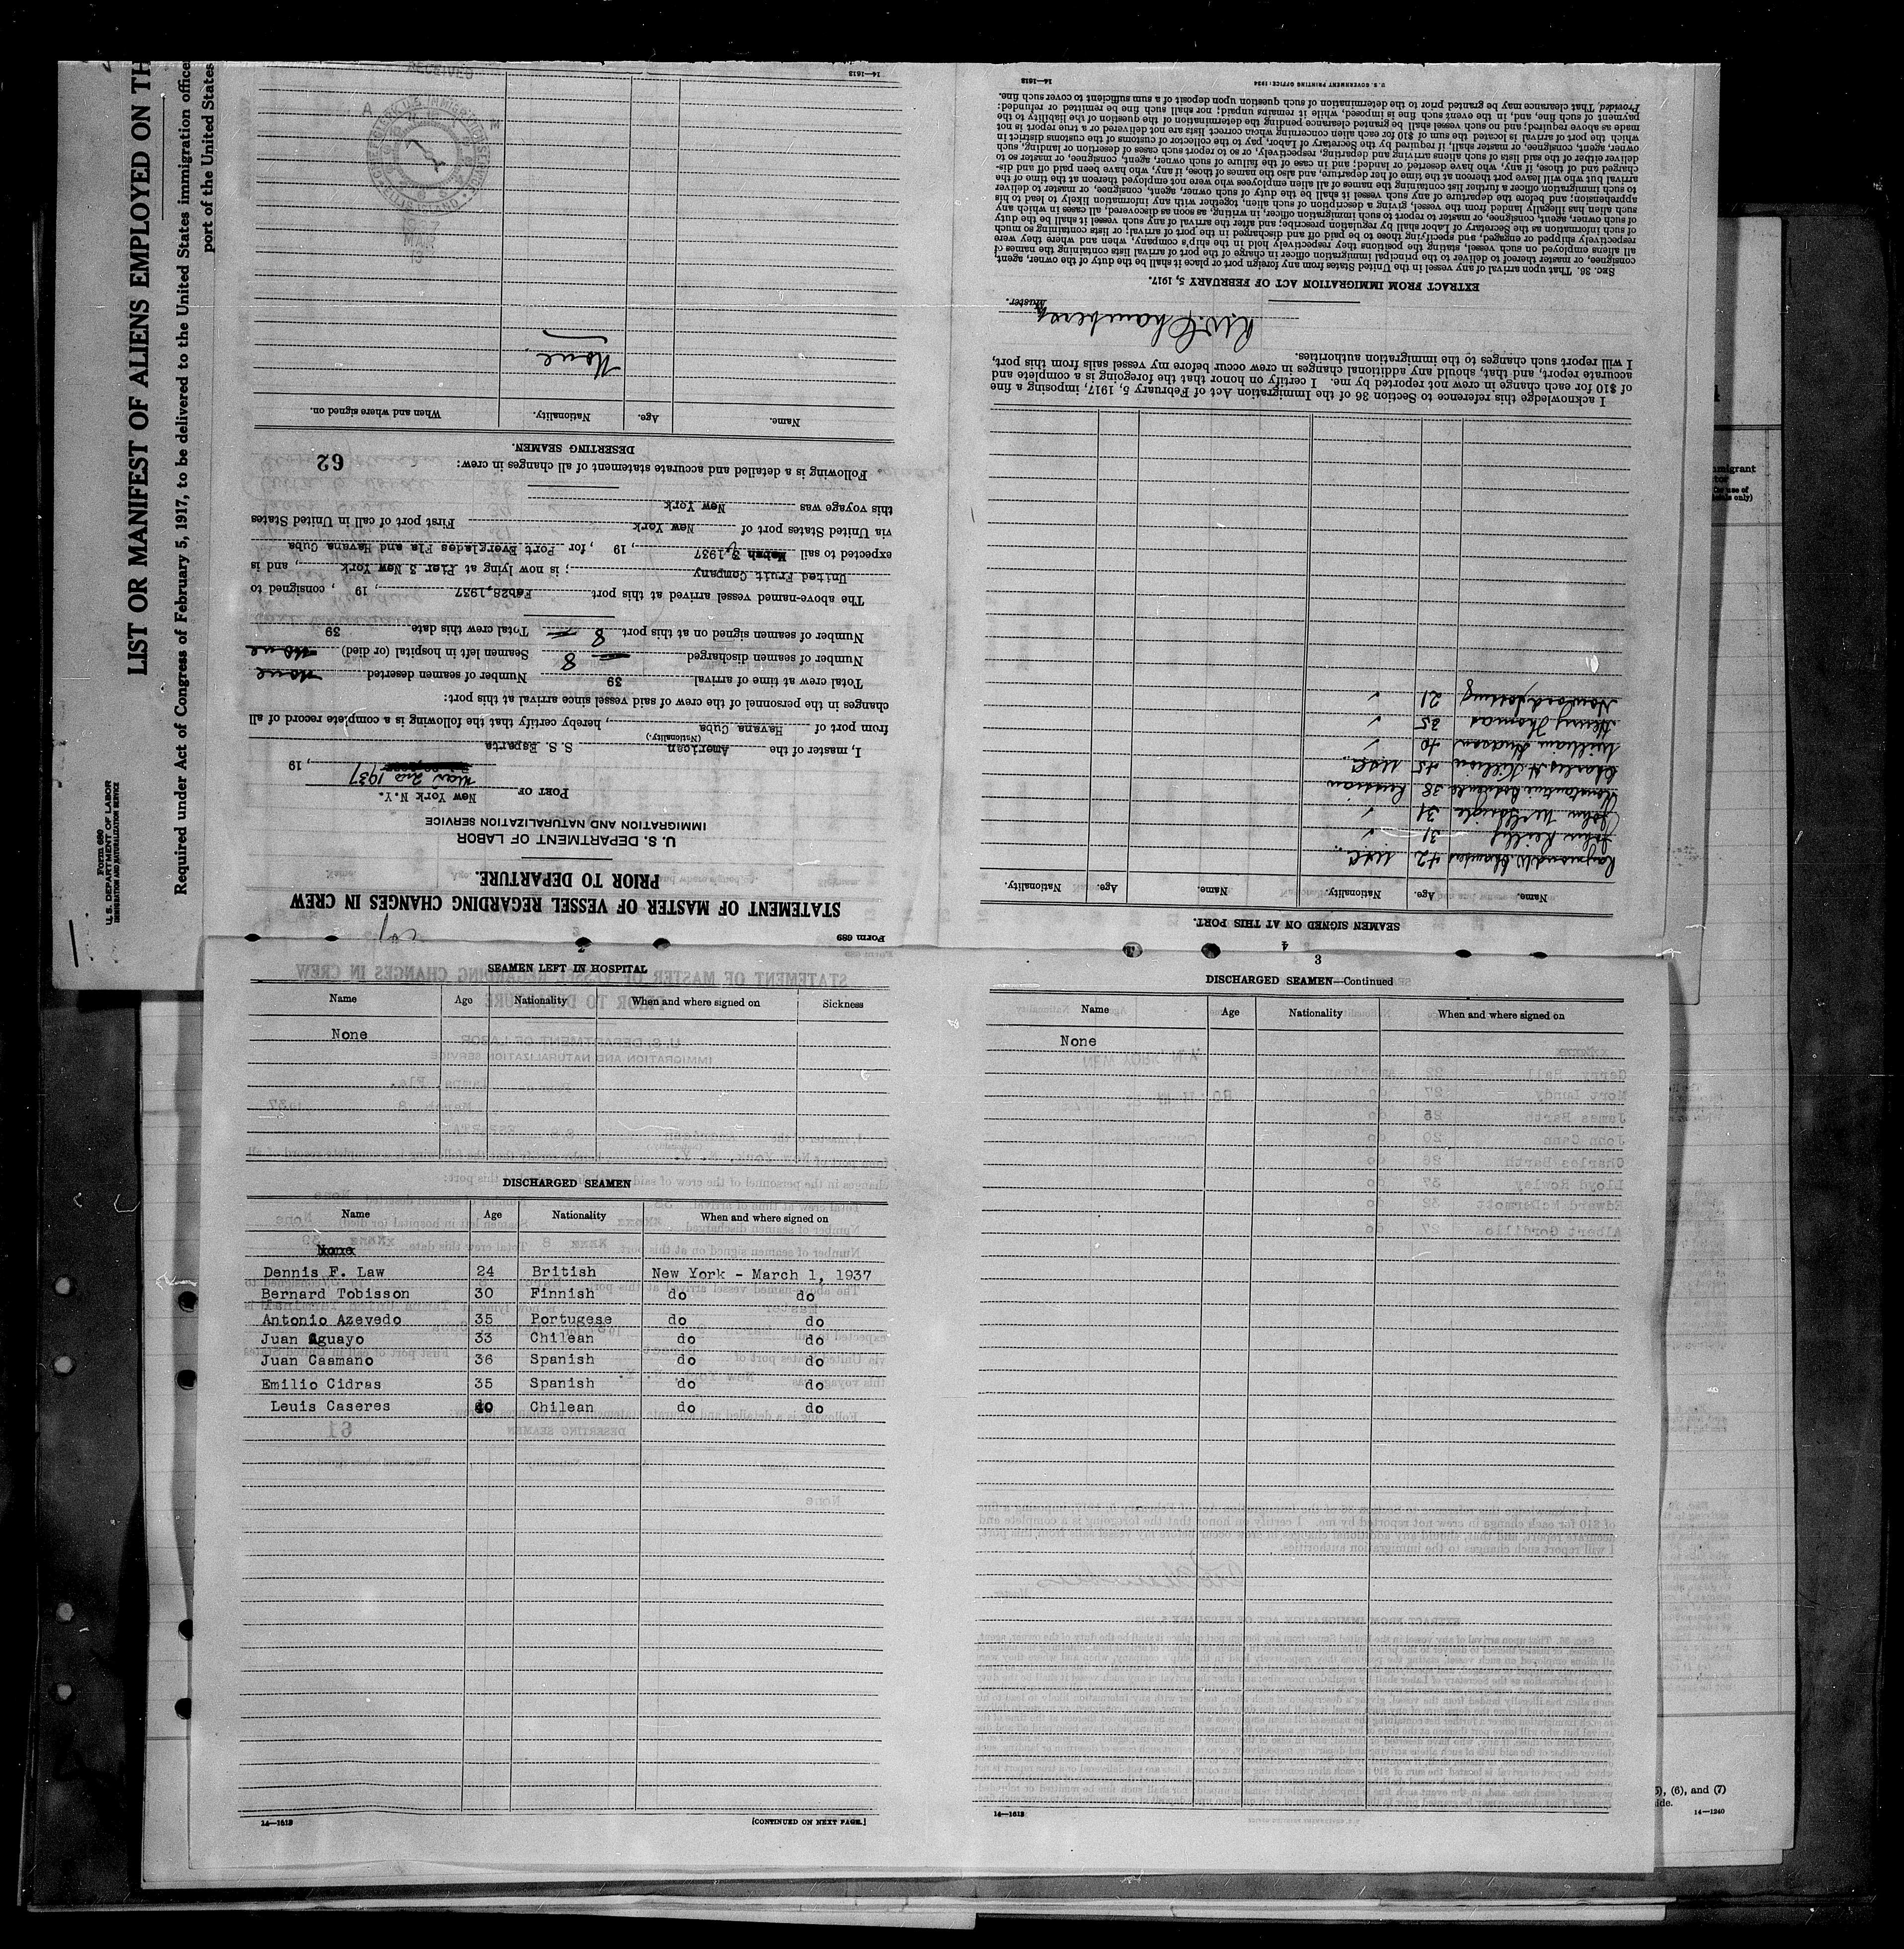 LIST OR MANIFEST OF ALIENS EMPLOYED ON TH
Required under Act of Congress of February 5, 1917, to be delivered to the United States immigration office
port of the United States
Form 680
U. S. DEPARTMENT OF LABOR
IMMIGRATION AND NATURALIZATION SERVICE
Form 689
STATEMENT OF MASTER OF VESSEL REGARDING CHANGES IN CREW
PRIOR TO DEPARTURE.
U. S. DEPARTMENT OF LABOR
IMMIGRATION AND NATURALIZATION SERVICE
PORT OF New York N.Y.
Mar 2nd 1937, 19
I, master of the American S. S. Esparta
(Nationality.)
from port of Havana Cuba, hereby certify that the following is a complete record of all
changes in the personnel of the crew of said vessel since arrival at this port:
Total crew at time of arrival 39 Number of seamen deserted None
Number of seamen discharged 8 Seamen left in hospital (or died) None
Number of seamen signed on at this port 8 Total crew this date 39
The above-named vessel arrived at this port Feb 28,1937, 19 , consigned to
United Fruit Company ; is now lying at Pier 3 New York, and is
expected to sail March 3,1937, 19 , for Port Everglades Fla and Havana Cuba
via United States port of New York First port of call in United States
this voyage was New York
Following is a detailed and accurate statement of all changes in crew:
62
DESERTING SEAMEN.
Name. Age. Nationality. When and where signed on.
None
RECEIVED
14—1613
SEAMEN SIGNED ON AT THIS PORT.
Name. Age. Nationality. Name. Age. Nationality.
Raymond W. 42 USA
John Reilly 31 ✓
John 31 ✓
38 Russian
Charles H. 45 USA
William Hudson 40 ✓
Henry Thomas 35 ✓
Howard 21 ✓
I acknowledge this reference to Section 36 of the Immigration Act of February 5, 1917, imposing a fine
of $10 for each change in crew not reported by me. I certify on honor that the foregoing is a complete and
accurate report, and that, should any additional changes in crew occur before my vessel sails from this port,
I will report such changes to the immigration authorities.
R.W. Chambers
Master.
EXTRACT FROM IMMIGRATION ACT OF FEBRUARY 5, 1917.
SEC. 36. That upon arrival of any vessel in the United States from any foreign port or place it shall be the duty of the owner, agent,
consignee, or master thereof to deliver to the principal immigration officer in charge of the port of arrival lists containing the names of
all aliens employed on such vessel, stating the positions they respectively hold in the ship's company, when and where they were
respectively shipped or engaged, and specifying those to be paid off and discharged in the port of arrival; or lists containing so much
of such information as the Secretary of Labor shall by regulation prescribe; and after the arrival of any such vessel it shall be the duty
of such owner, agent, consignee, or master to report to such immigration officer, in writing, as soon as discovered, all cases in which any
such alien has illegally landed from the vessel, giving a description of such alien, together with any information likely to lead to his
apprehension; and before the departure of any such vessel it shall be the duty of such owner, agent, consignee, or master to deliver
to such immigration officer a further list containing the names of all alien employees who were not employed thereon at the time of the
arrival but who will leave port thereon at the time of her departure, and also the names of those, if any, who have been paid off and dis-
charged and of those, if any, who have deserted or landed; and in case of the failure of such owner, agent, consignee, or master so to
deliver either of the said lists of such aliens arriving and departing, respectively, or so to report such cases of desertion or landing, such
owner, agent, consignee, or master shall, if required by the Secretary of Labor, pay to the collector of customs of the customs district in
which the port of arrival is located the sum of $10 for each alien concerning whom correct lists are not delivered or a true report is not
made as above required; and no such vessel shall be granted clearance pending the determination of the question of the liability to the
payment of such fine, and, in the event such fine is imposed, while it remains unpaid; nor shall such fine be remitted or refunded:
Provided, That clearance may be granted prior to the determination of such question upon deposit of a sum sufficient to cover such fine.
U. S. GOVERNMENT PRINTING OFFICE: 1934
14—1613
4
2
SEAMEN LEFT IN HOSPITAL
Name Age Nationality When and where signed on Sickness
None
DISCHARGED SEAMEN
Name Age Nationality When and where signed on
None
Dennis F. Law 24 British New York - March 1, 1937
Bernard Tobisson 30 Finnish do do
Antonio Azevedo 35 Portugese do do
Juan Aguayo 33 Chilean do do
Juan Caamano 36 Spanish do do
Emilio Cidras 35 Spanish do do
Leuis Caseres 40 Chilean do do
14—1613
[CONTINUED ON NEXT PAGE.]
3
DISCHARGED SEAMEN—Continued
Name Age Nationality When and where signed on
None
14—1613
mmigrant
tor
(For use of
only)
5), (6), and (7)
ide.
14—1240